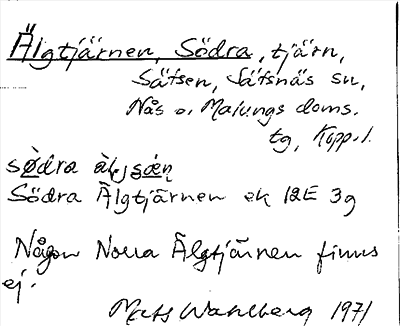 Älgtjärnen, Södra, tjärn,
Säfsen, Säfsnäs sn,
Nås o. Malungs doms.
tg, Kopp. l.
södra
Södra Älgtjärnen ek 12E 3g
Någon Norra Älgtjärnen finns
ej.
Mats Wahlberg 1971